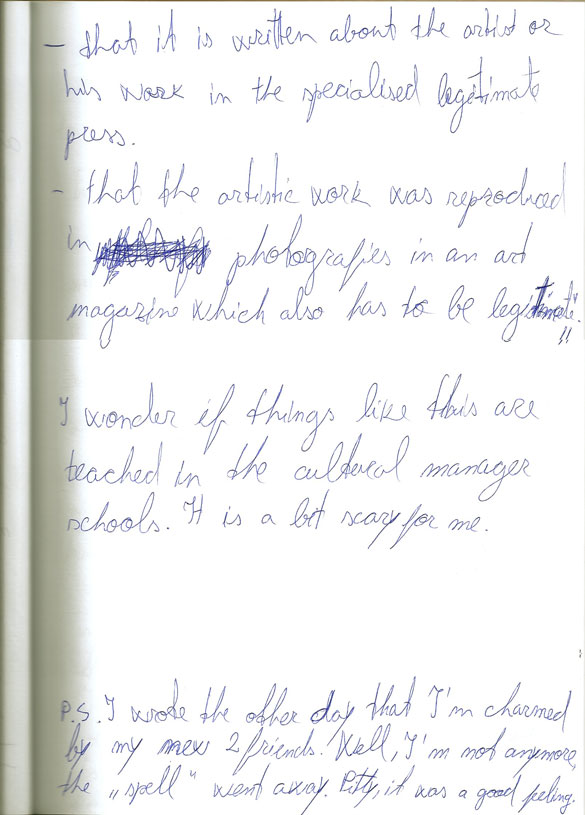 - that it is written about the artist or
his work in the specialised legitimate
press.
- that the artistic work was reproduced
in photografies in an art
magazine which also has to be legitimate".
I wonder if things like this are
teached in the cultural manager
schools. It is a bit scary for me.
P.S. I wrote the other day that I'm charmed
by my new 2 friends. Well, I'm not anymore,
the „spell" went away. Pitty, it was a good feeling.